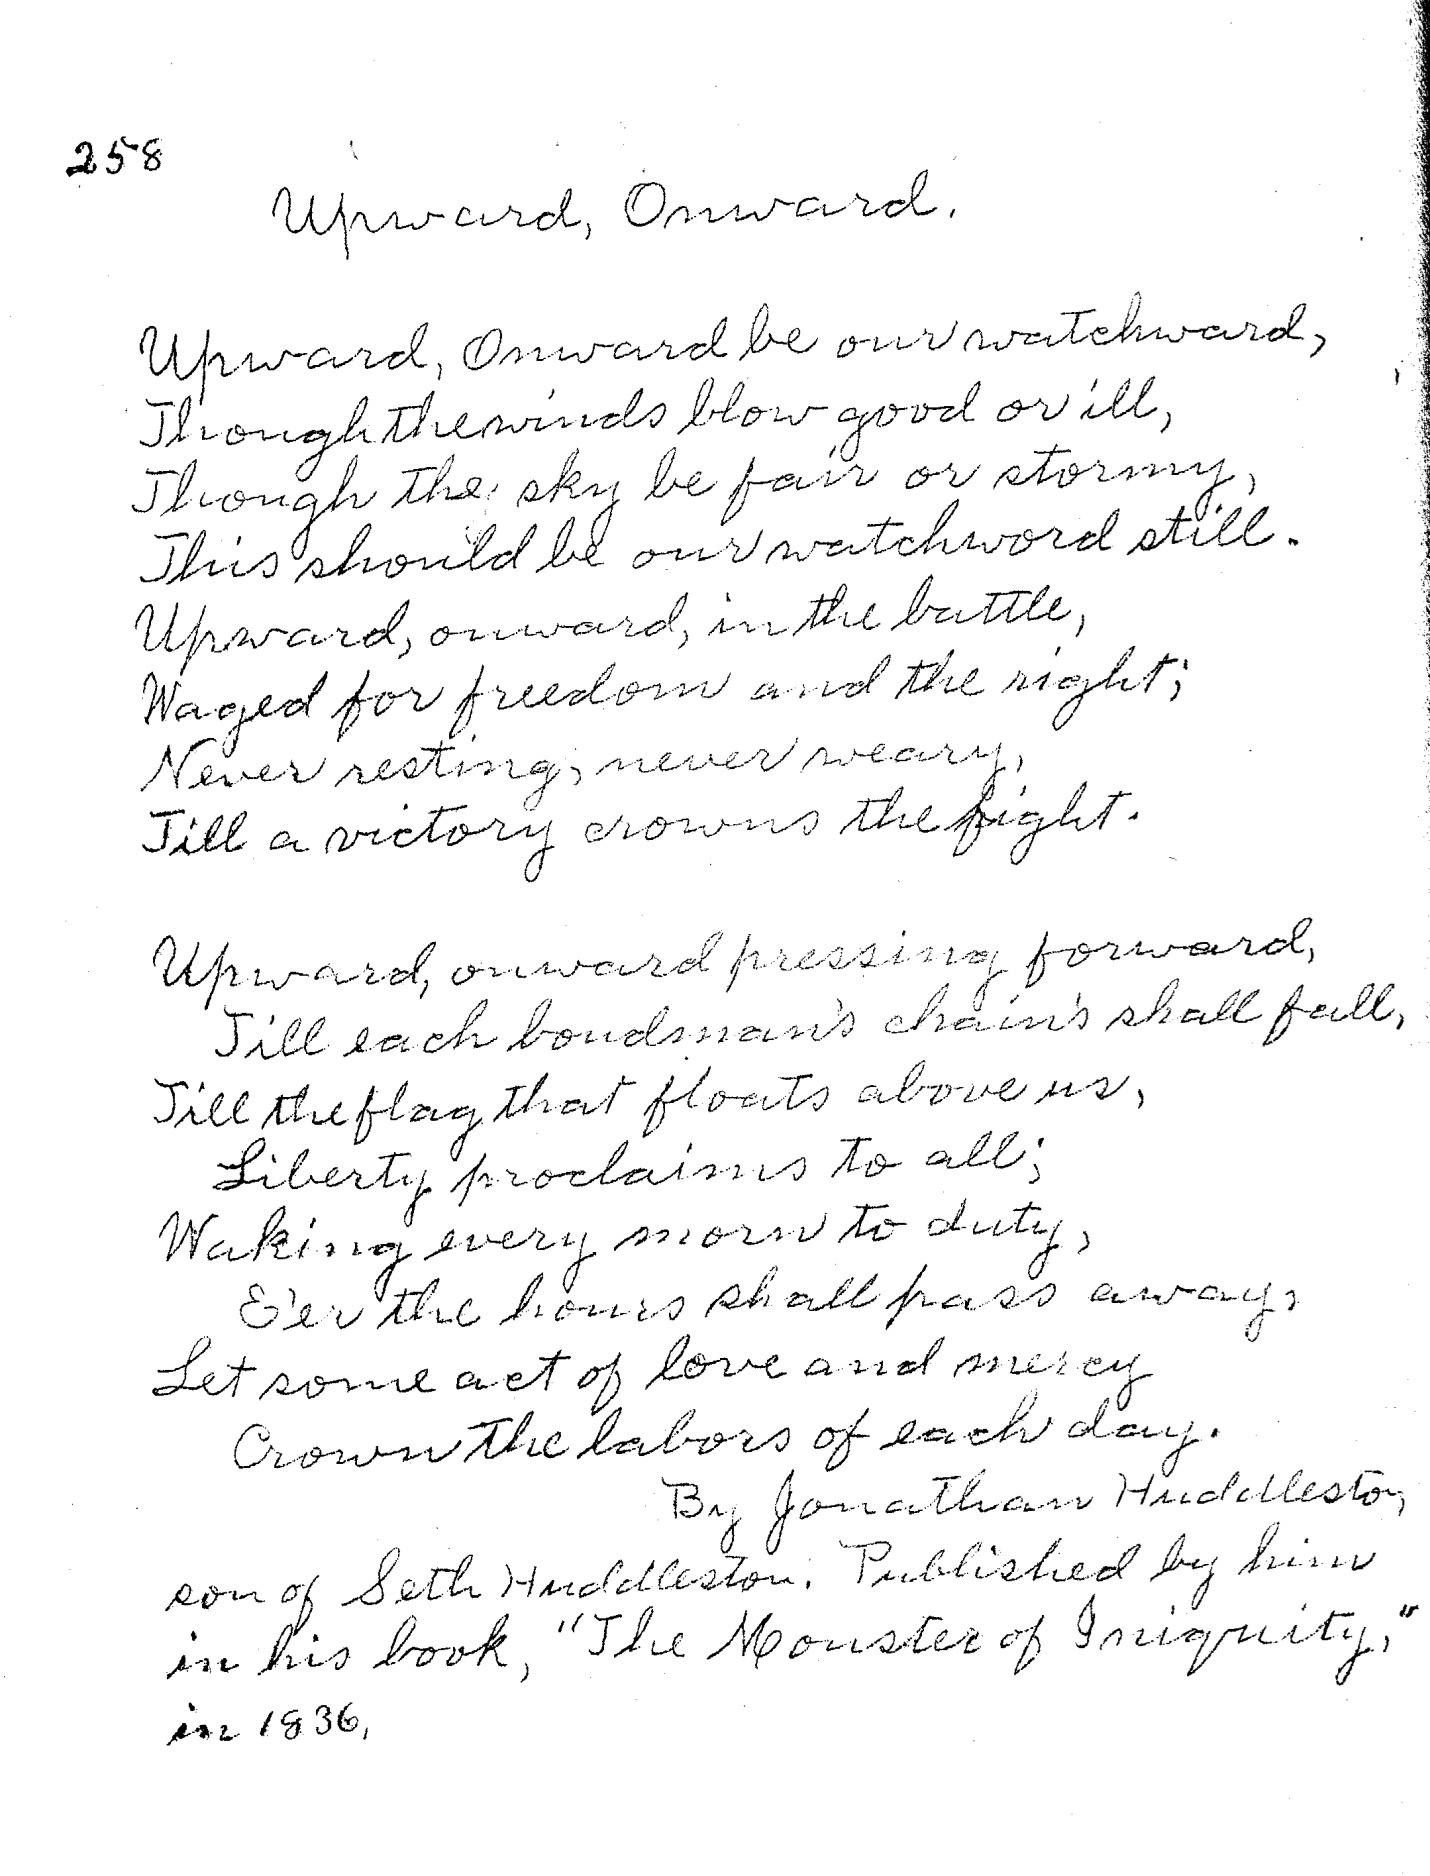 258
Upward, Onward.
Upward, Onward be our watchward,
Though the winds blow good or ill,
Though the sky be fair or stormy,
This should be our watchword still.
Upward, onward, in the battle,
Waged for freedom and the right;
Never resting, never weary,
Till a victory crowns the fight.
Upward, onward pressing forward,
Till each bondman's chain's shall fall,
Till the flag that floats above us,
Liberty proclaims to all;
Waking every morn to duty,
E'er the hours shall pass away,
Let some act of love and mercy
Crown the labors of each day.
By Jonathan Huddleston,
son of Seth Huddleston. Published by him
in his book, "The Monster of Iniquity,"
in 1836.